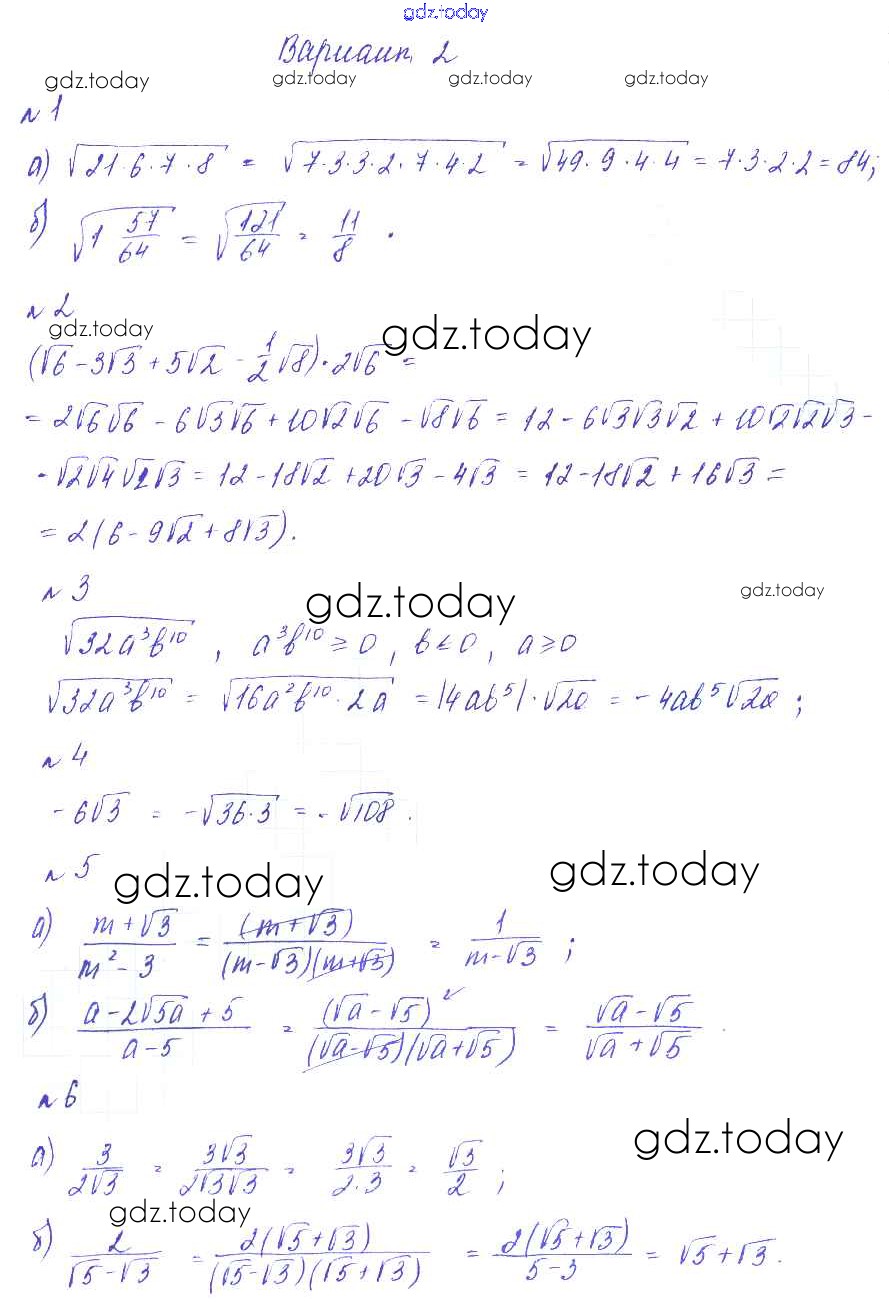 gdz.today
Вариант 2
gdz.today gdz.today gdz.today gdz.today
№ 1
а) √(21·6·7·8) = √(7·3·3·2·7·4·2) = √(49·9·4·4) = 7·3·2·2 = 84;
б) √(1 57/64) = √(121/64) = 11/8 .
№ 2
gdz.today gdz.today
(√6 - 3√3 + 5√2 - 1/2 √8)·2√6 =
= 2√6√6 - 6√3√6 + 10√2√6 - √8√6 = 12 - 6√3√3√2 + 10√2√2√3 -
- √2√4√2√3 = 12 - 18√2 + 20√3 - 4√3 = 12 - 18√2 + 16√3 =
= 2(6 - 9√2 + 8√3).
№ 3
gdz.today gdz.today
√(32a³b¹⁰) , a³b¹⁰ ≥ 0 , b ≤ 0 , a ≥ 0
√(32a³b¹⁰) = √(16a²b¹⁰·2a) = |4ab⁵|·√(2a) = -4ab⁵√(2a) ;
№ 4
-6√3 = -√(36·3) = -√108 .
№ 5
gdz.today gdz.today
а) (m+√3)/(m²-3) = (m+√3)/((m-√3)(m+√3)) = 1/(m-√3) ;
б) (a-2√(5a)+5)/(a-5) = (√a-√5)²/((√a-√5)(√a+√5)) = (√a-√5)/(√a+√5) .
№ 6
gdz.today
а) 3/(2√3) = 3√3/(2√3√3) = 3√3/(2·3) = √3/2 ;
gdz.today
б) 2/(√5-√3) = 2(√5+√3)/((√5-√3)(√5+√3)) = 2(√5+√3)/(5-3) = √5+√3.